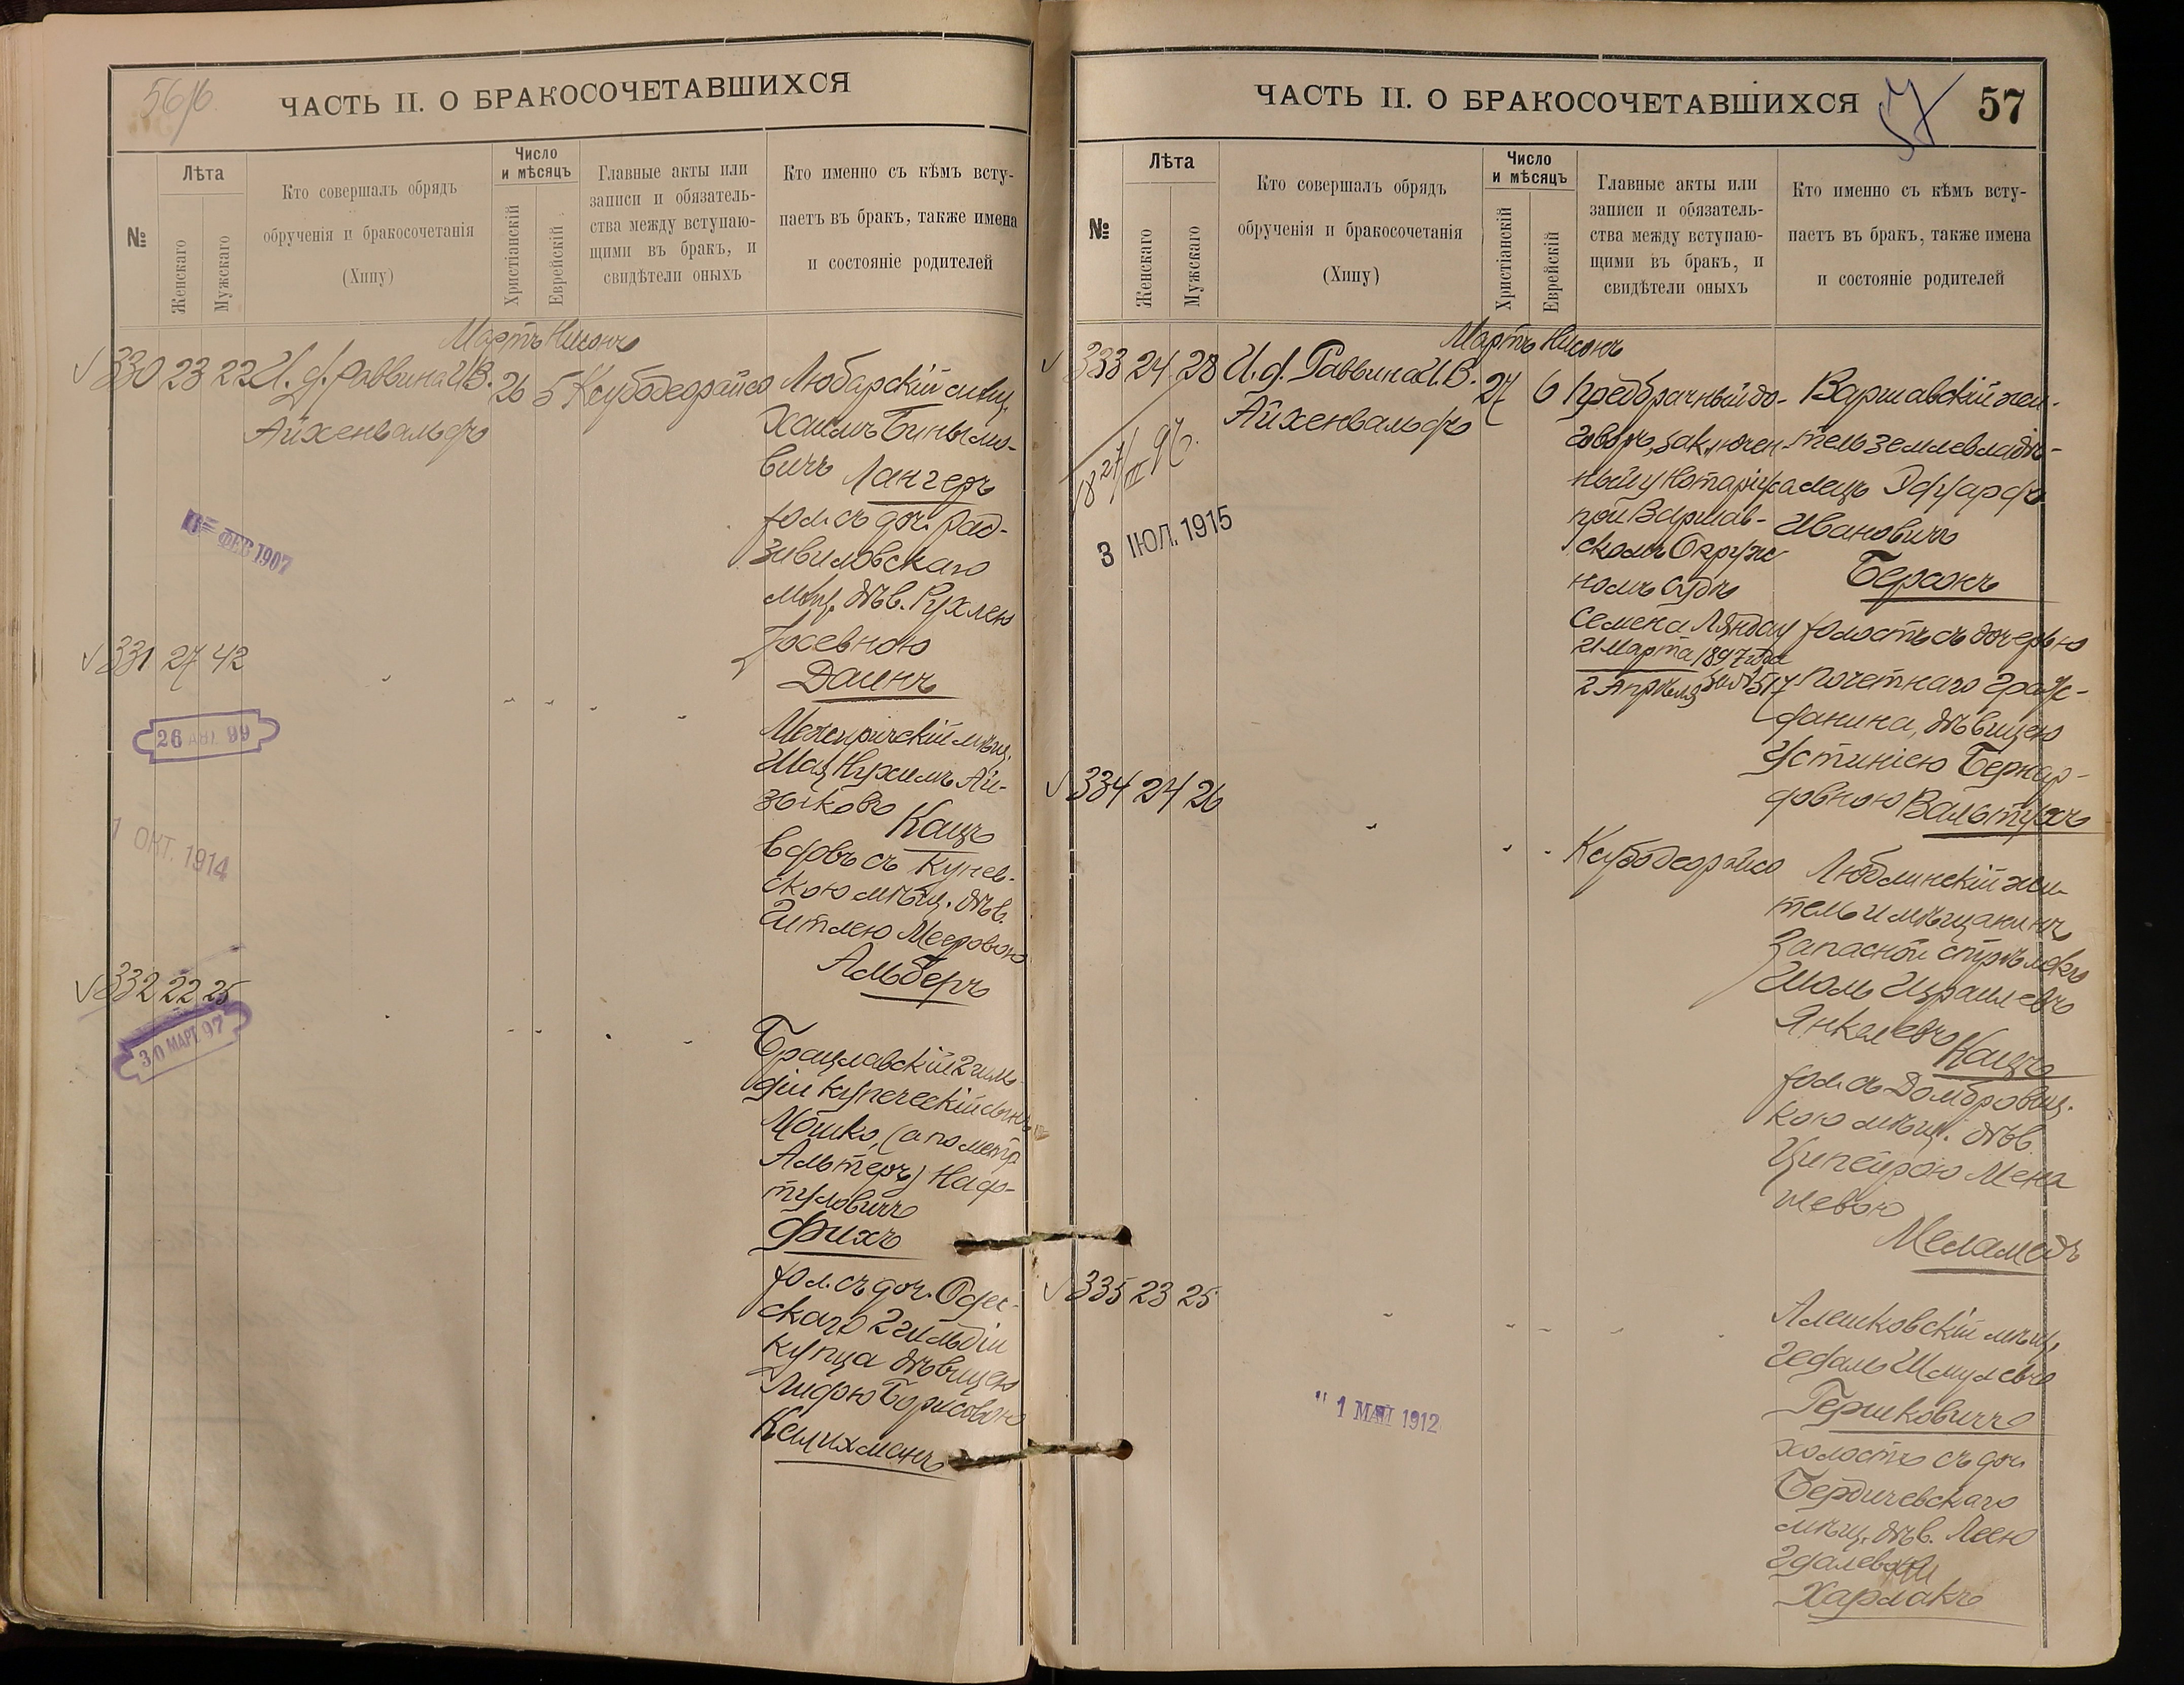 56/б.
ЧАСТЬ II. О БРАКОСОЧЕТАВШИХСЯ
№
Лѣта
Женскаго
Мужскаго
Кто совершалъ обрядъ
обрученія и бракосочетанія
(Хипу)
Число
и мѣсяцъ
Христіанскій
Еврейскій
Главные акты или
записи и обязатель-
ства между вступаю-
щими въ бракъ, и
свидѣтели оныхъ
Кто именно съ кѣмъ всту-
паетъ въ бракъ, также имена
и состояніе родителей
Мартъ Нисонъ
330 23 22 И. д. Раввина И.В.
Айхенвальдъ
26 5 Ксубодеорайсо
Любарскій мѣщ.
Хаимъ Бинымо-
вичъ Лангеръ
хол. съ доч. Рад-
зивиловскаго
мѣщ. дѣв. Рухлею
Іосевною
Даинъ
ФЕВ 1907
331 27 42
Межиричскій мѣщ.
Шая Нухимъ Ай-
зыковъ Кацъ
вдовъ съ Кунев-
скою мѣщ. дѣв.
Гитлею Мееровою
Альберъ
26 АВГ. 99
1 ОКТ. 1914
332 22 25
30 МАРТ 97
Брацлавскій 2 гиль-
діи купеческій сынъ
Мошко, (а по метр.
Альтеръ) Наф-
туловичъ
Фихъ
хол. съ доч. Одес-
скаго 2 гильдіи
купца дѣвицею
Лидою Борисовою
Келихманъ
ЧАСТЬ II. О БРАКОСОЧЕТАВШИХСЯ
57
57
№
Лѣта
Женскаго
Мужскаго
Кто совершалъ обрядъ
обрученія и бракосочетанія
(Хипу)
Число
и мѣсяцъ
Христіанскій
Еврейскій
Главные акты или
записи и обязатель-
ства между вступаю-
щими въ бракъ, и
свидѣтели оныхъ
Кто именно съ кѣмъ всту-
паетъ въ бракъ, также имена
и состояніе родителей
Мартъ Нисонъ
333 24 28 И. д. Раввина И.В.
Айхенвальдъ
27 6
Предбрачный до-
говоръ, заключен-
ный у Нотаріуса
при Варшав-
скомъ Окруж
номъ судѣ
Семена Ляндау
21 Марта 1897 года
2 Апрѣля за № 517
Варшавскій жи-
тель землевладѣ-
лецъ Эдуардъ
Ивановичъ
Берсонъ
холостъ съ дочерью
почетнаго граж-
данина, дѣвицею
Устиніею Бернар-
довною Вальтухъ
3 ІЮЛ. 1915
334 24 26
Ксубодеорайсо
Люблинскій жи-
тель и мѣщанинъ
Запасной стрѣлокъ
Шоль Израилевъ
Янкелевъ Кацъ
хол. съ Домбровиц.
кою мѣщ. дѣв.
Ципейрою Мена
шевою
Меламедъ
335 23 25
Алешковскій мѣщ.
Гедаль Шмулевъ
Гершковичъ
холостъ съ доч.
Бердичевскаго
мѣщ. дѣв. Леею
Харлакъ
1 МАЙ 1912